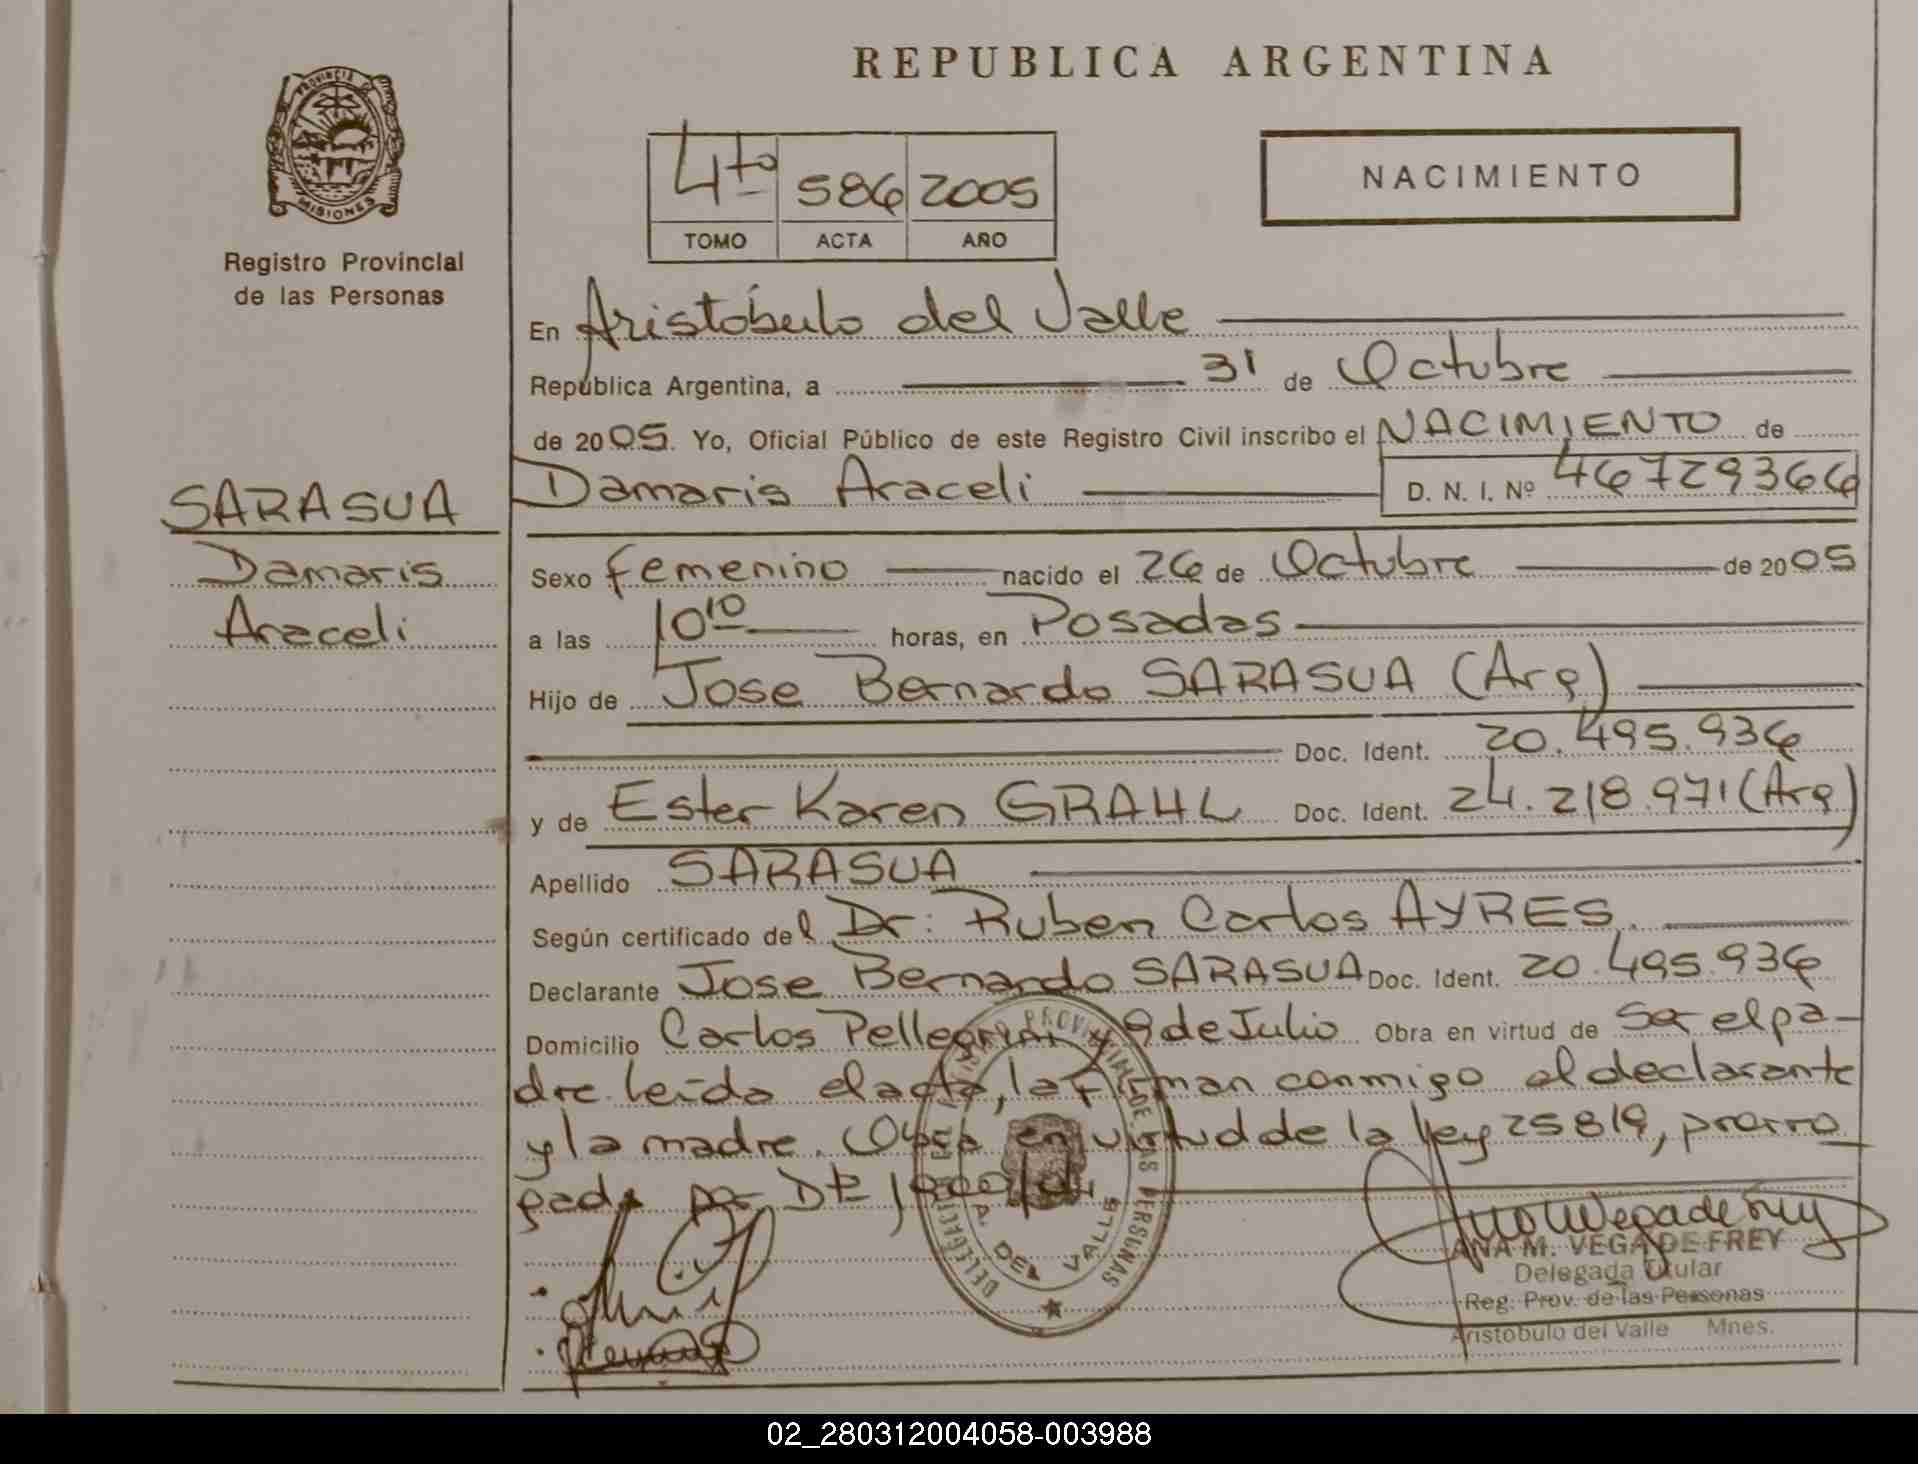 REPUBLICA ARGENTINA
PROVINCIA DE
MISIONES
Registro Provincial
de las Personas
4to 586 2005
TOMO ACTA AÑO
NACIMIENTO
En Aristóbulo del Valle
República Argentina, a 31 de Octubre
de 2005. Yo, Oficial Público de este Registro Civil inscribo el NACIMIENTO de
Damaris Araceli D. N. I. Nº 46729366
SARASUA
Damaris
Araceli
Sexo femenino nacido el 26 de Octubre de 2005
a las 10 10 horas, en Posadas
Hijo de Jose Bernardo SARASUA (Arg)
Doc. Ident. 20.495.936
y de Ester Karen GRAHL Doc. Ident. 24.218.971 (Arg)
Apellido SARASUA
Según certificado del Dr: Ruben Carlos AYRES.
Declarante Jose Bernardo SARASUA Doc. Ident. 20.495.936
Domicilio Carlos Pellegrini y 9 de Julio Obra en virtud de Ser el pa-
dre. leída el acta, la firman conmigo el declarante
y la madre. Obra en virtud de la ley 25819, prorro
gada por
DELEGACION REGISTRO PROVINCIAL DE LAS PERSONAS
A. DEL VALLE
ANA M. VEGA DE FREY
Delegada Titular
Reg. Prov. de las Personas
Aristobulo del Valle Mnes.
02_280312004058-003988